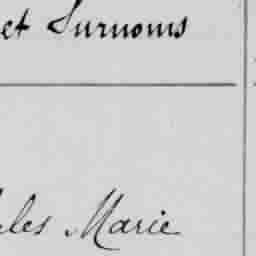 et Surnoms
les Marie